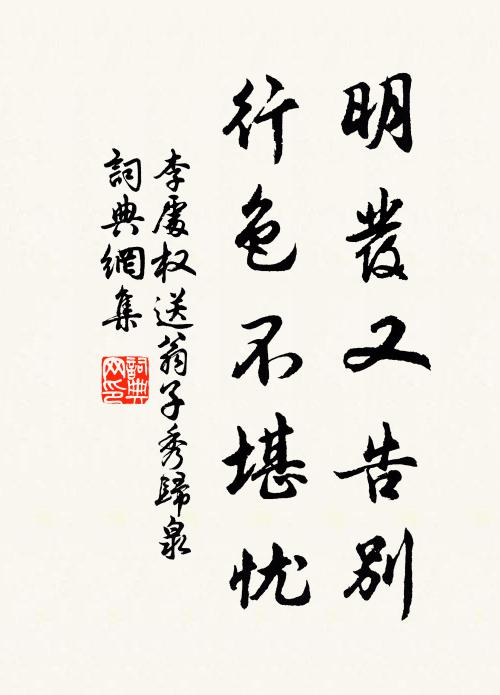 明發又告別
行色不堪忧
李處权送翁子秀歸泉
詞典網集
詞典網印